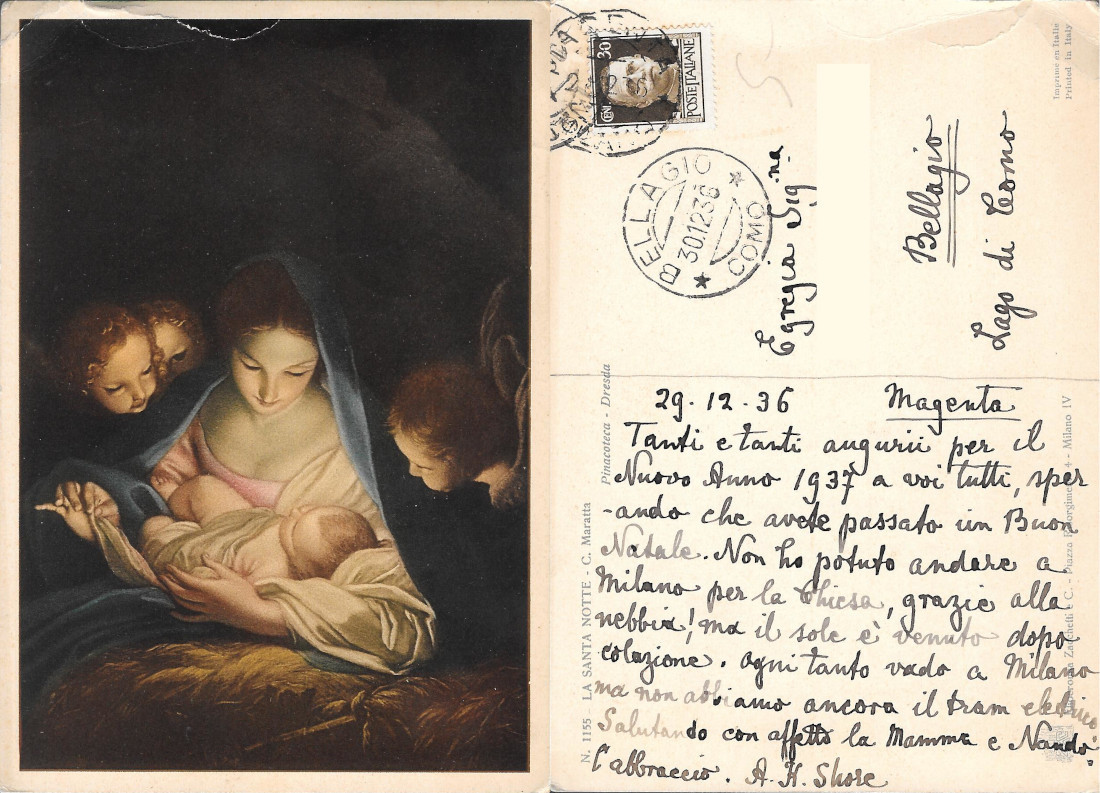 CENT 30
POSTE ITALIANE
BELLAGIO
30.12.36
COMO
Imprimé en Italie
Printed in Italy
Egregia Sigⁿᵃ
Bellagio
Lago di Como
29-12-36 Magenta
Tanti e tanti augurii per il
Nuovo Anno 1937 a voi tutti, sper
-ando che avete passato un Buon
Natale. Non ho potuto andare a
Milano per la Chiesa, grazie alla
nebbia! ma il sole è venuto dopo
colazione. Ogni tanto vado a Milano
ma non abbiamo ancora il tram elettrico
Salutando con affetto la Mamma e Nando
l'abbraccio. A. H. Shore
N. 1155 - LA SANTA NOTTE - C. Maratta
Pinacoteca - Dresda
Zacchetti e C. - Piazza 4 - Milano IV